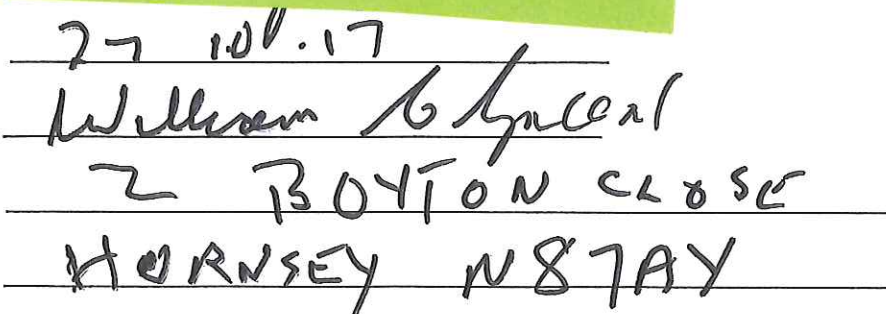 27 10.17
William
2 BOYTON CLOSE
HORNSEY N8 7AY